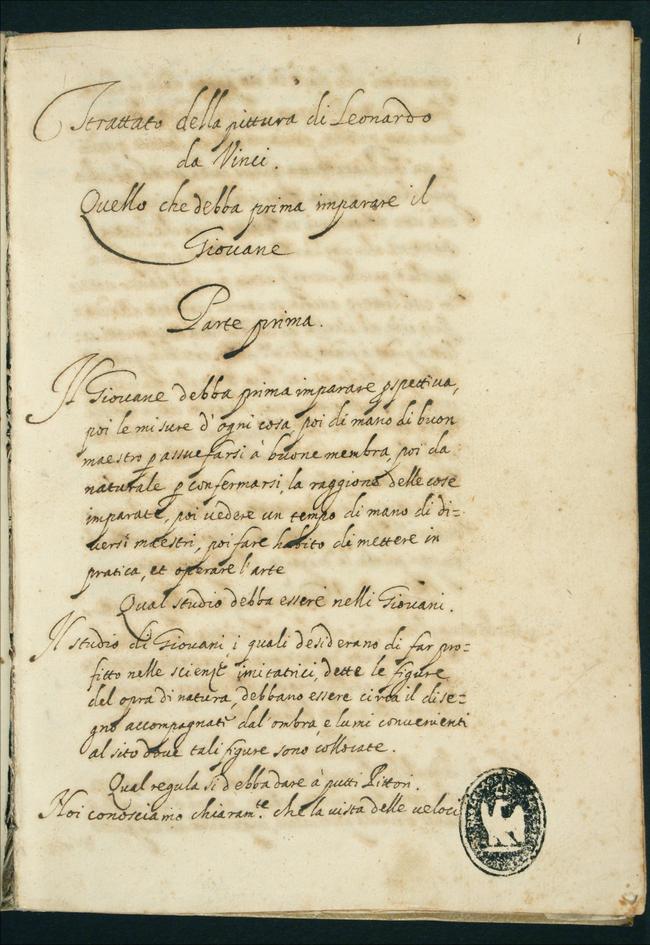 1
Trattato della pittura di Leonardo
da Vinci.
Quello che debba prima imparare il
Giouane
Parte prima.
Il Giouane debba prima imparare pspettiua,
poi le misure d'ogni cosa, poi di mano di buon
maestro p assuefarsi à buone membra, poi da
naturale p confermarsi, la raggione delle cose
imparate, poi uedere un tempo di mano di di=
uersi maestri, poi fare habito di mettere in
pratica, et operare l'arte
Qual studio debba essere nelli Giouani.
Il studio di Giouani, i quali desiderano di far pro=
fitto nelle scienze imitatrici, dette le figure
del opra di natura, debbano essere circa il dise=
gno accompagnati dal'ombra, e lumi conuenienti
al sito doue tali figure sono collocate.
Qual regula si debba dare à putti Pittori.
Noi conosciamo chiaram.te che la uista delle ueloci